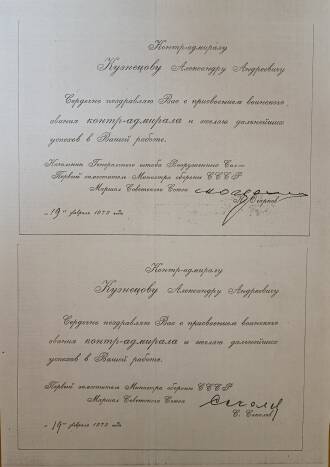 Контр-адмиралу
Кузнецову Александру Андреевичу
Сердечно поздравляю Вас с присвоением воинского
звания контр-адмирала и желаю дальнейших
успехов в Вашей работе.
Начальник Генерального штаба Вооруженных Сил-
Первый заместитель Министра обороны СССР
Маршал Советского Союза
Н. Огарков
"19" февраля 1978 года
Контр-адмиралу
Кузнецову Александру Андреевичу
Сердечно поздравляю Вас с присвоением воинского
звания контр-адмирала и желаю дальнейших
успехов в Вашей работе.
Первый заместитель Министра обороны СССР
Маршал Советского Союза
С. Соколов
"19" февраля 1978 года